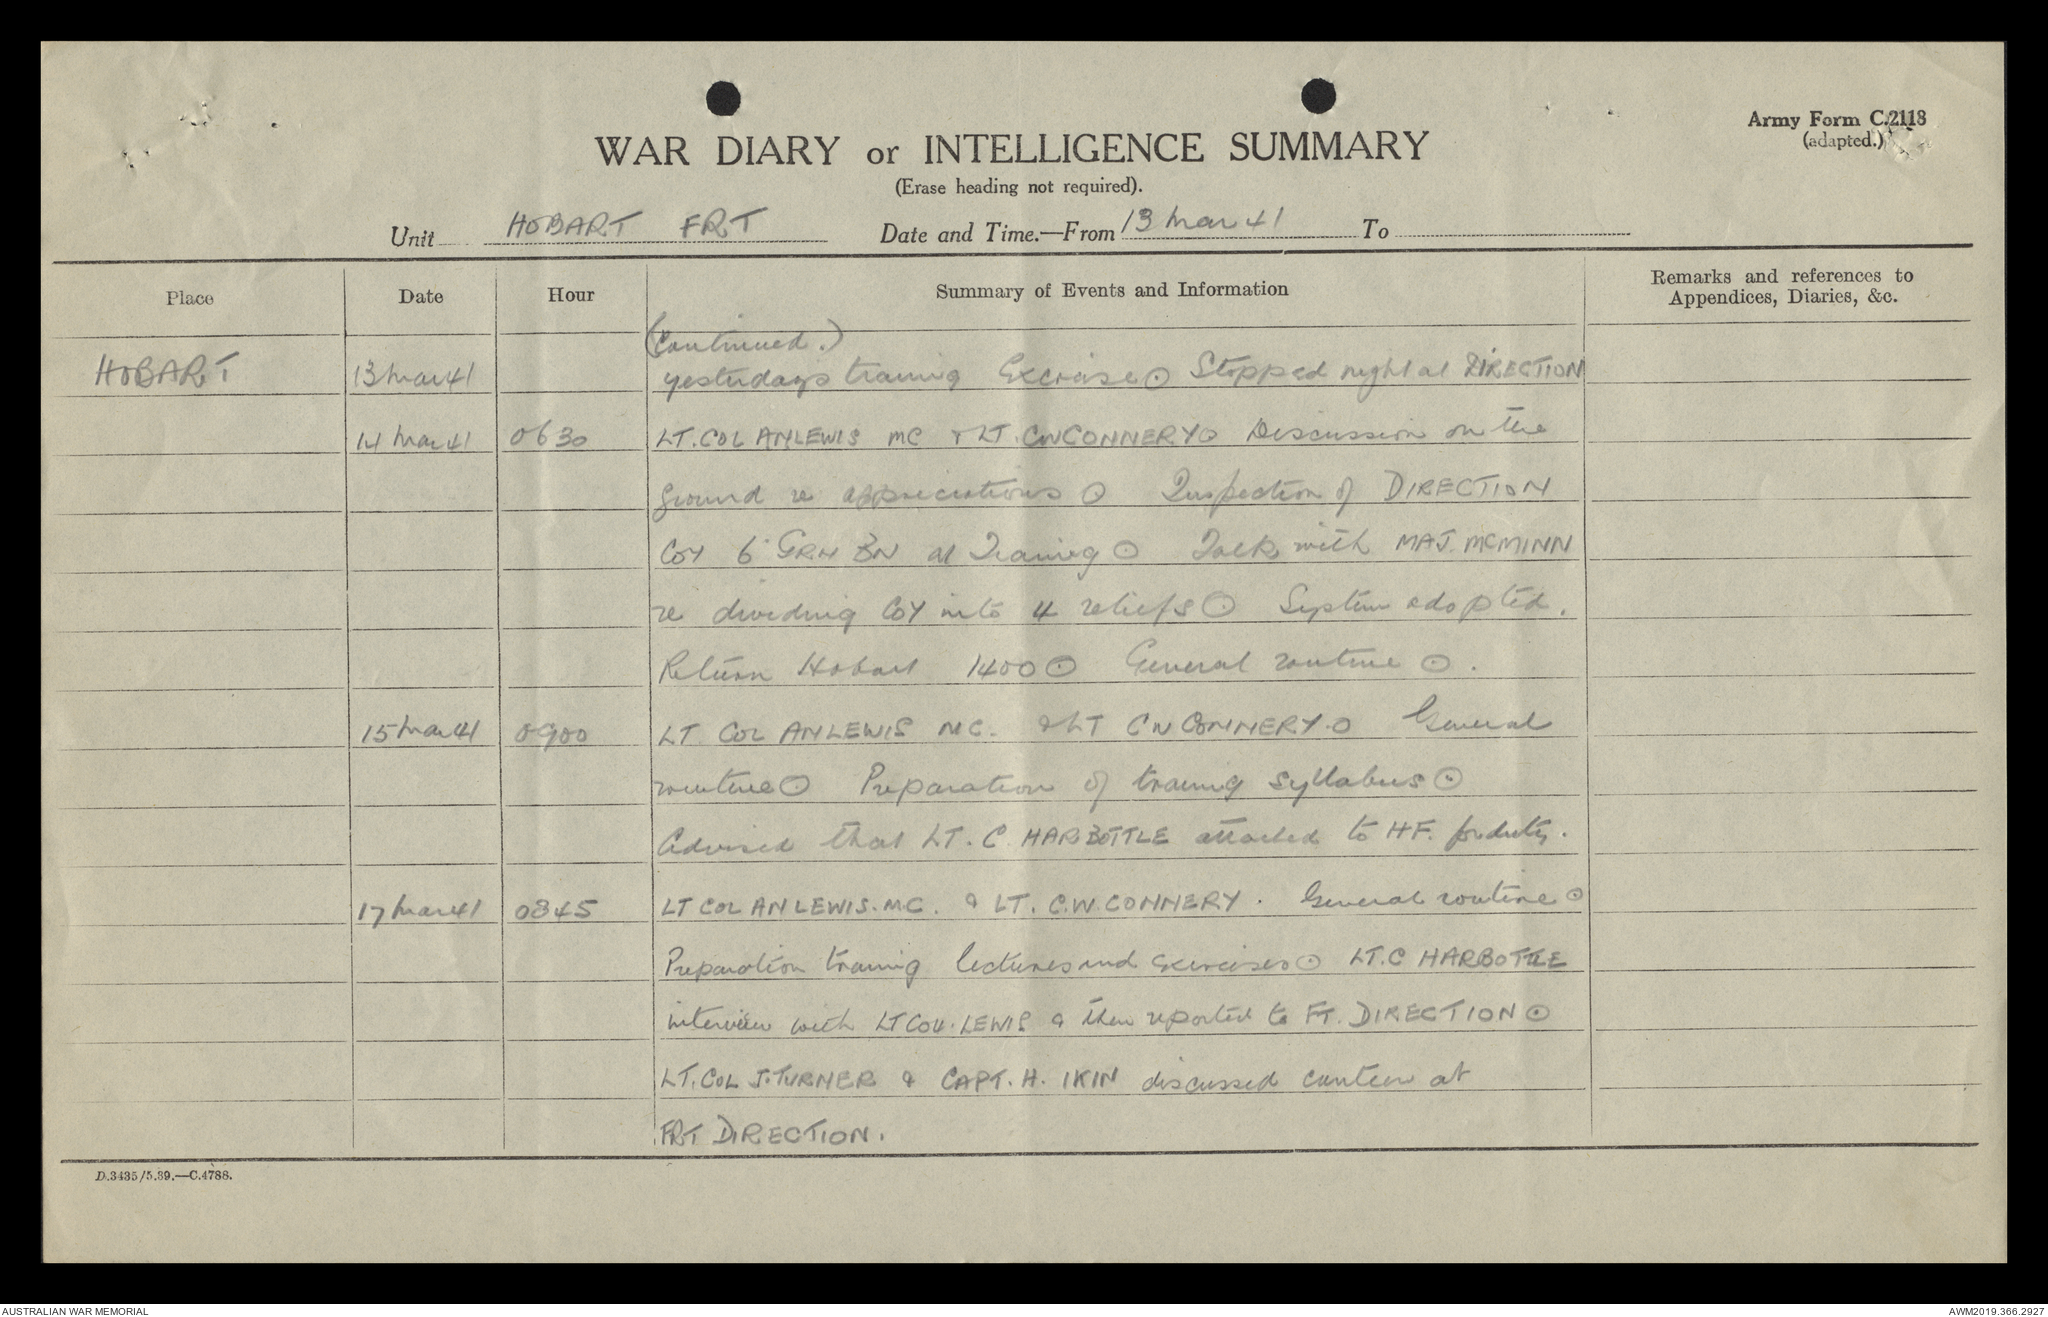 Army Form C.2118
(adapted.)
WAR DIARY or INTELLIGENCE SUMMARY
(Erase heading not required).
Unit HOBART FRT Date and Time.—From 13 Mar 41 To
Place Date Hour Summary of Events and Information Remarks and references to Appendices, Diaries, &c.
(Continued.)
HOBART 13 Mar 41 yesterdays training Exercise ⊙ Stopped night at DIRECTION
14 Mar 41 0630 LT. COL AN LEWIS MC & LT. CW CONNERY ⊙ Discussion on the
ground re appreciations ⊙ Inspection of DIRECTION
COY 6 GRN BN at Training ⊙ Talk with MAJ. MCMINN
re dividing COY into 4 reliefs ⊙ System adopted.
Return Hobart 1400 ⊙ General routine ⊙.
15 Mar 41 0900 LT. COL AN LEWIS MC. & LT CW CONNERY. ⊙ General
routine ⊙ Preparation of training syllabus ⊙
Advised that LT. C. HARBOTTLE attached to HF. for duty.
17 Mar 41 0845 LT COL AN LEWIS. MC. & LT. C.W. CONNERY. General routine ⊙
Preparation training lectures and exercises ⊙ LT. C HARBOTTLE
interview with LT COL. LEWIS & then reported to FT. DIRECTION ⊙
LT. COL J. TURNER & CAPT. H. IKIN discussed canteen at
FRT DIRECTION.
D.3435/5.39.—C.4788.
AUSTRALIAN WAR MEMORIAL AWM2019.366.2927